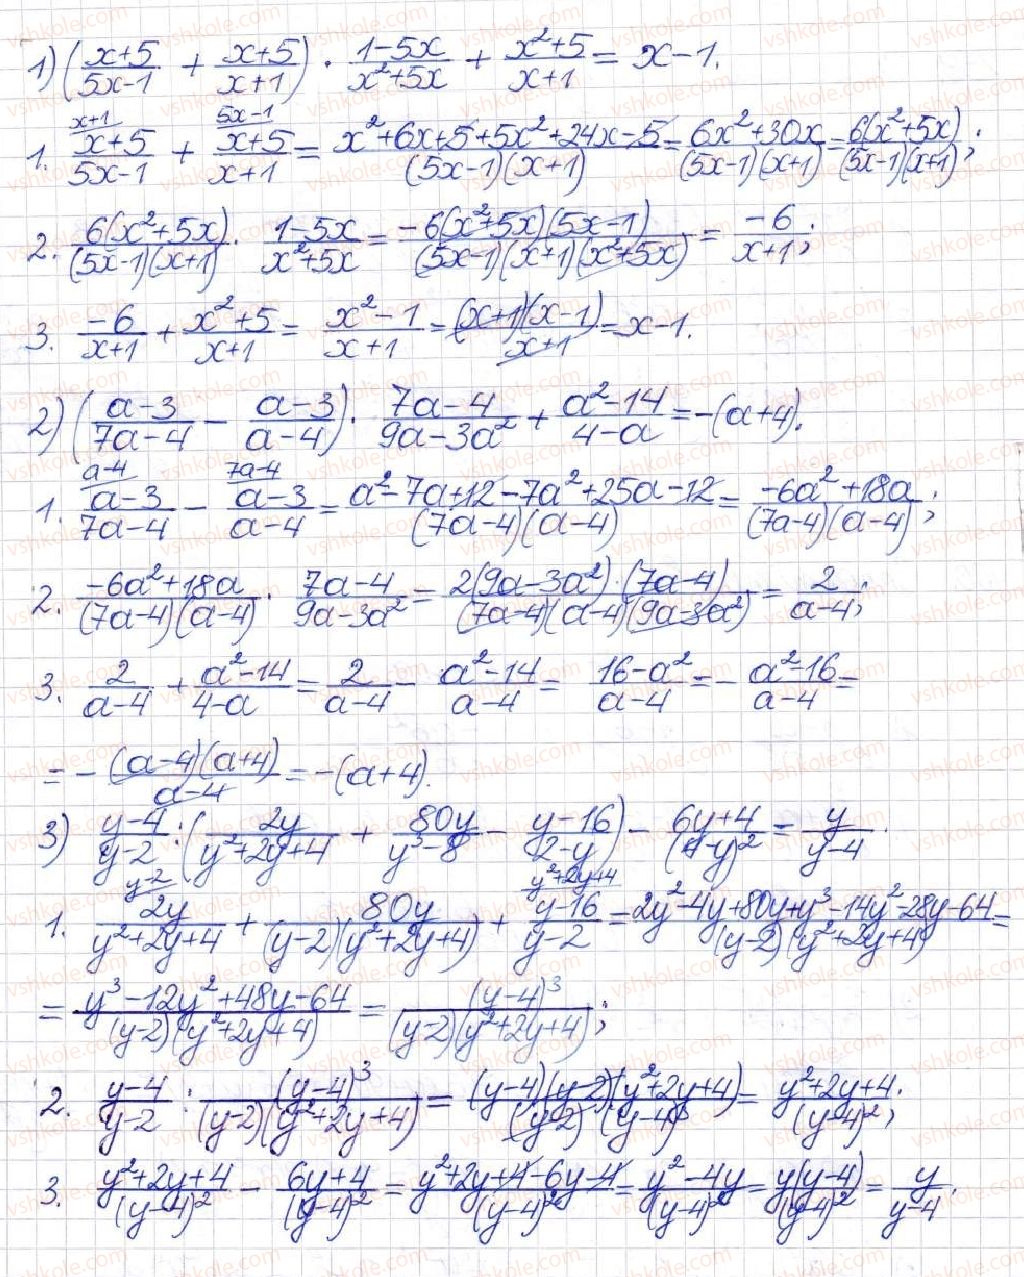 1) ((x+5)/(5x-1) + (x+5)/(x+1)) · (1-5x)/(x²+5x) + (x²+5)/(x+1) = x-1.
1. (x+5)/(5x-1) [x+1] + (x+5)/(x+1) [5x-1] = (x²+6x+5+5x²+24x-5)/((5x-1)(x+1)) = (6x²+30x)/((5x-1)(x+1)) = 6(x²+5x)/((5x-1)(x+1));
2. 6(x²+5x)/((5x-1)(x+1)) · (1-5x)/(x²+5x) = -6(x²+5x)(5x-1)/((5x-1)(x+1)(x²+5x)) = -6/(x+1);
3. -6/(x+1) + (x²+5)/(x+1) = (x²-1)/(x+1) = (x+1)(x-1)/(x+1) = x-1.
2) ((a-3)/(7a-4) - (a-3)/(a-4)) · (7a-4)/(9a-3a²) + (a²-14)/(4-a) = -(a+4).
1. (a-3)/(7a-4) [a-4] - (a-3)/(a-4) [7a-4] = (a²-7a+12-7a²+25a-12)/((7a-4)(a-4)) = (-6a²+18a)/((7a-4)(a-4));
2. (-6a²+18a)/((7a-4)(a-4)) · (7a-4)/(9a-3a²) = 2(9a-3a²)·(7a-4)/((7a-4)(a-4)(9a-3a²)) = 2/(a-4);
3. 2/(a-4) + (a²-14)/(4-a) = 2/(a-4) - (a²-14)/(a-4) = (16-a²)/(a-4) = -(a²-16)/(a-4) =
= -(a-4)(a+4)/(a-4) = -(a+4).
3) (y-4)/(y-2) : (2y/(y²+2y+4) + 80y/(y³-8) - (y-16)/(2-y)) - (6y+4)/(4-y)² = y/(y-4).
1. 2y/(y²+2y+4) [y-2] + 80y/((y-2)(y²+2y+4)) + (y-16)/(y-2) [y²+2y+4] = (2y²-4y+80y+y³-14y²-28y-64)/((y-2)(y²+2y+4)) =
= (y³-12y²+48y-64)/((y-2)(y²+2y+4)) = (y-4)³/((y-2)(y²+2y+4));
2. (y-4)/(y-2) : (y-4)³/((y-2)(y²+2y+4)) = (y-4)(y-2)(y²+2y+4)/((y-2)(y-4)³) = (y²+2y+4)/(y-4)²;
3. (y²+2y+4)/(y-4)² - (6y+4)/(y-4)² = (y²+2y+4-6y-4)/(y-4)² = (y²-4y)/(y-4)² = y(y-4)/(y-4)² = y/(y-4).